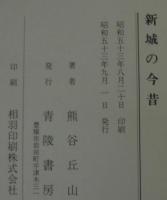 新城の今昔
昭和五十三年八月二十日 印刷
昭和五十三年九月一日 発行
著者 熊谷丘山
発行 青陵書房
印刷 相羽印刷株式会社